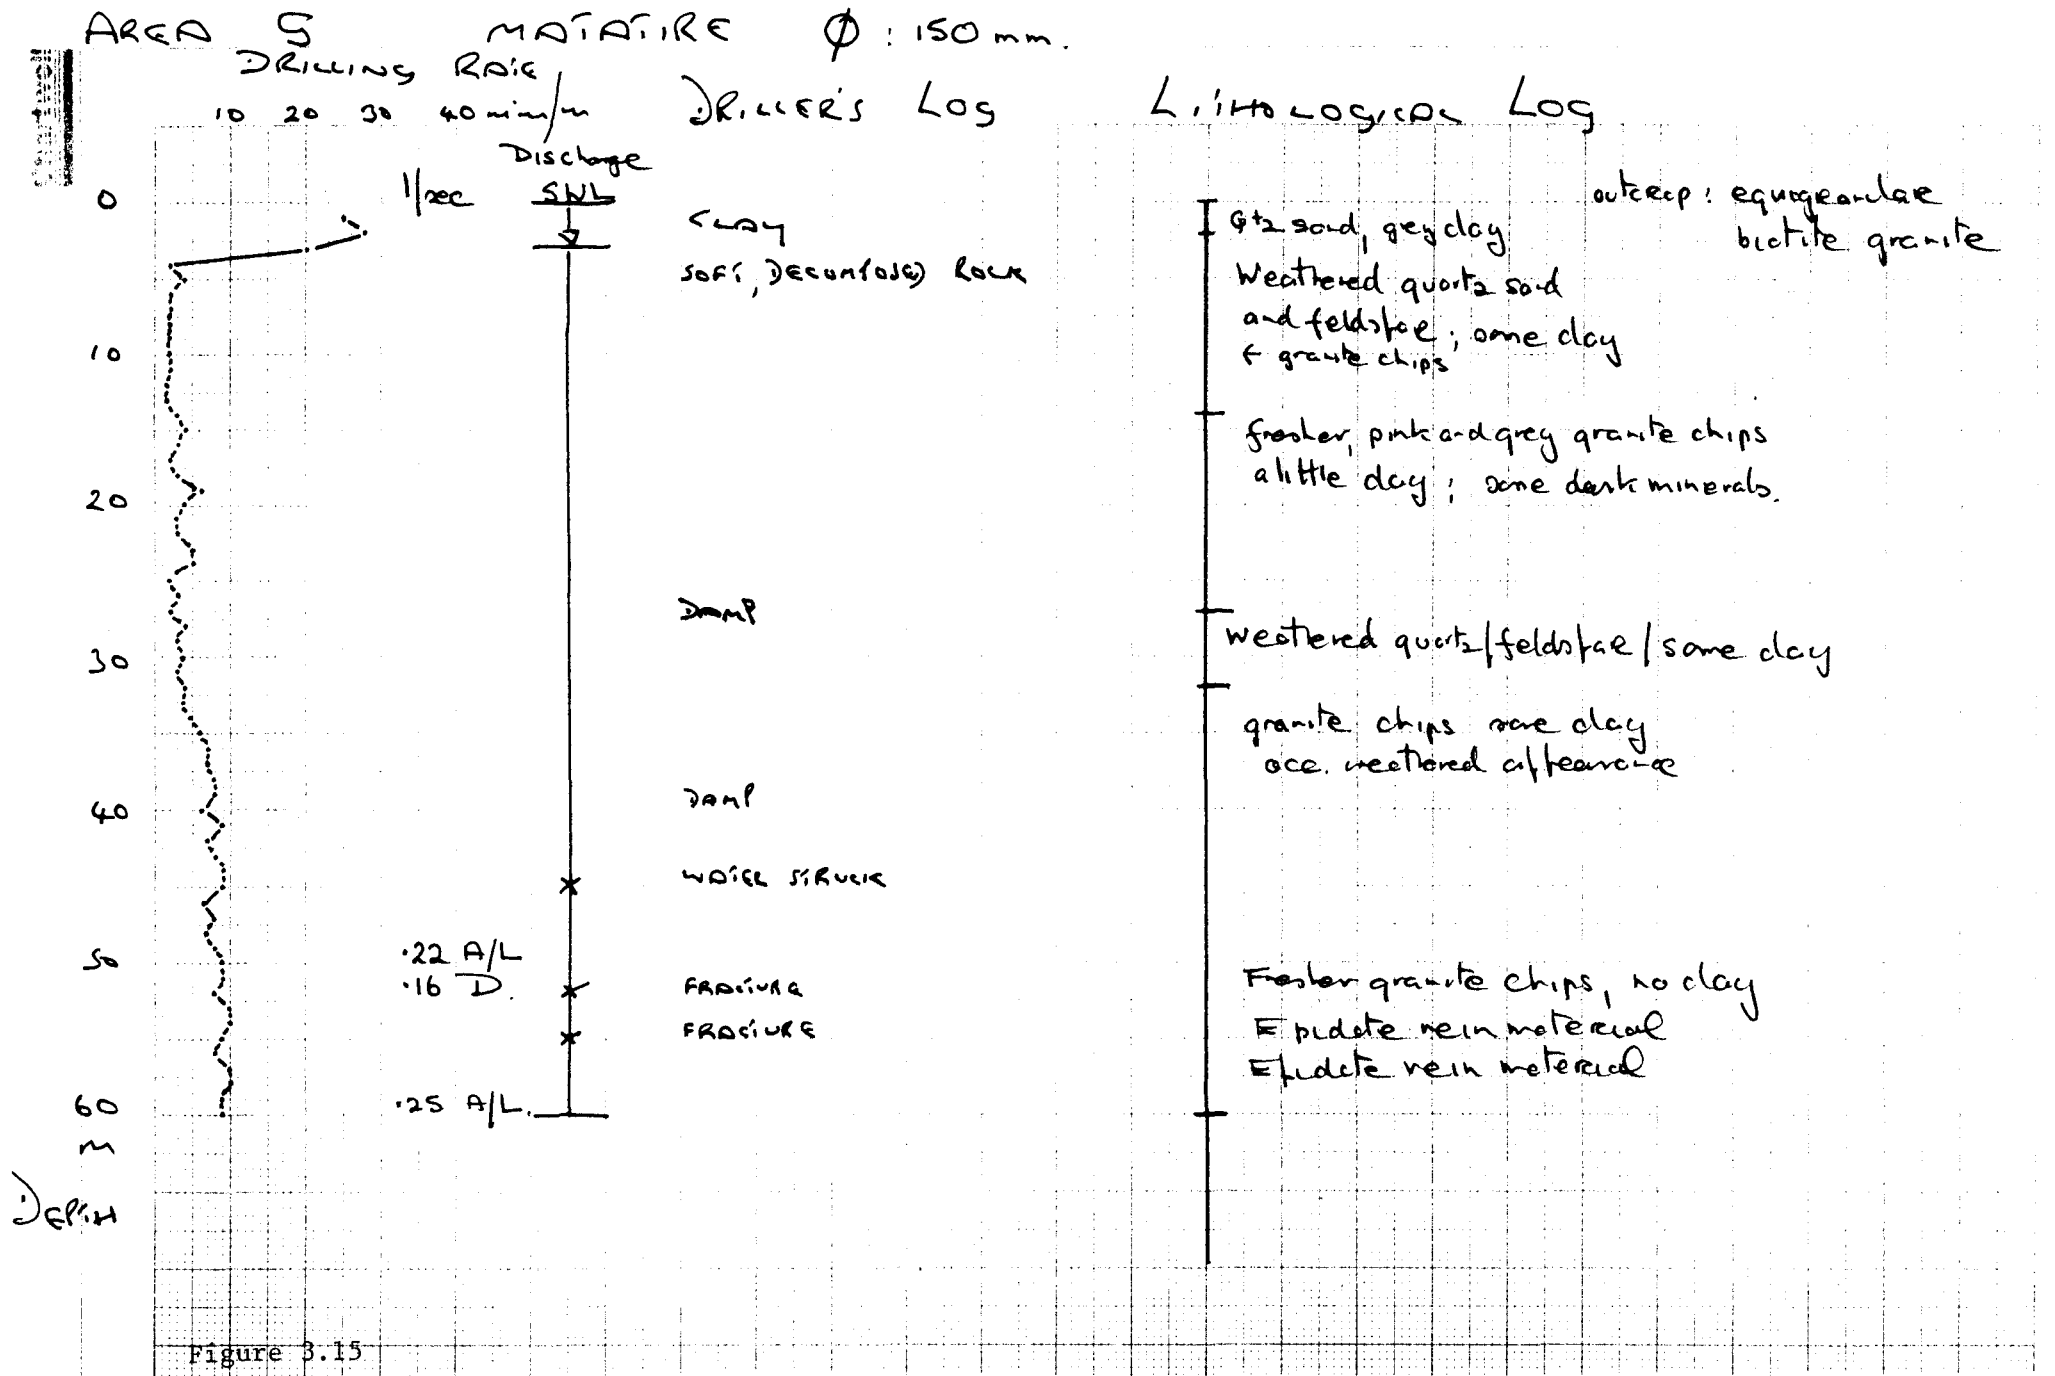 AREA 5 MATATIRE Ø : 150 mm.
DRILLING RATE
10 20 30 40 min/m
DRILLER'S LOG
LITHOLOGICAL LOG
Discharge
l/sec
SWL
0
10
20
30
40
50
60
m
DEPTH
.22 A/L
.16 D.
.25 A/L.
CLAY
SOFT, DECOMPOSED ROCK
DAMP
DAMP
WATER STRUCK
FRACTURE
FRACTURE
outcrop : equigranular
biotite granite
Qtz sand, grey clay
Weathered quartz sand
and feldspar ; some clay
+ granite chips
fresher, pink and grey granite chips
a little clay ; some dark minerals.
weathered quartz/feldspar/some clay
granite chips some clay
occ. weathered appearance
Fresher granite chips, no clay
Epidote vein material
Epidote vein material
Figure 3.15